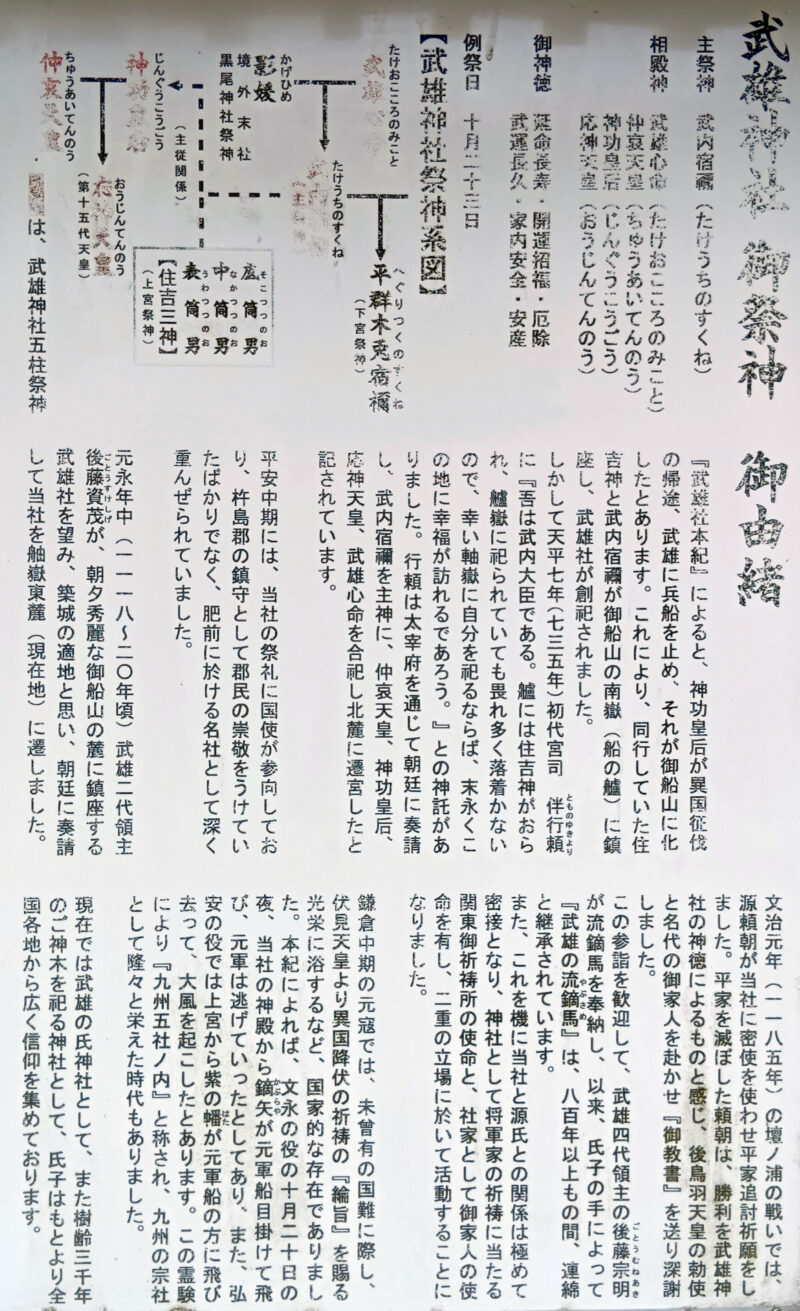 武雄神社 御祭神 御由緒
主祭神 武内宿禰（たけうちのすくね）
相殿神 武雄心命（たけおこころのみこと）
仲哀天皇（ちゅうあいてんのう）
神功皇后（じんぐうこうごう）
応神天皇（おうじんてんのう）
御神徳 延命長寿・開運招福・厄除
武運長久・家内安全・安産
例祭日 十月二十三日
【武雄神社祭神系図】
たけおこころのみこと
武雄心命
かげひめ
影媛
境外末社
黒尾神社祭神
たけうちのすくね
へぐりつくのすくね
平群木菟宿禰
（下宮祭神）
じんぐうこうごう
神功皇后
（主従関係）
そこつつのお
底筒男
なかつつのお
中筒男
うわつつのお
表筒男
【住吉三神】
（上宮祭神）
ちゅうあいてんのう
仲哀天皇
おうじんてんのう
応神天皇
（第十五代天皇）
は、武雄神社五柱祭神
『武雄社本紀』によると、神功皇后が異国征伐
の帰途、武雄に兵船を止め、それが御船山に化
したとあります。これにより、同行していた住
吉神と武内宿禰が御船山の南嶽（船の艫）に鎮
座し、武雄社が創祀されました。
しかして天平七年（七三五年）初代宮司 伴行頼
とものゆきより
に『吾は武内大臣である。艫には住吉神がおら
れ、艫嶽に祀られていても畏れ多く落着かない
ので、幸い軸嶽に自分を祀るならば、末永くこ
の地に幸福が訪れるであろう。』との神託があ
りました。行頼は太宰府を通じて朝廷に奏請
し、武内宿禰を主神に、仲哀天皇、神功皇后、
応神天皇、武雄心命を合祀し北麓に遷宮したと
記されています。
平安中期には、当社の祭礼に国使が参向してお
り、杵島郡の鎮守として郡民の崇敬をうけてい
たばかりでなく、肥前に於ける名社として深く
重んぜられていました。
元永年中（一一一八～二〇年頃）武雄二代領主
後藤資茂が、朝夕秀麗な御船山の麓に鎮座する
ごとうすけしげ
武雄社を望み、築城の適地と思い、朝廷に奏請
して当社を舳嶽東麓（現在地）に遷しました。
文治元年（一一八五年）の壇ノ浦の戦いでは、
源頼朝が当社に密使を使わせ平家追討祈願をし
ました。平家を滅ぼした頼朝は、勝利を武雄神
社の神徳によるものと感じ、後鳥羽天皇の勅使
と名代の御家人を赴かせ『御教書』を送り深謝
しました。
この参詣を歓迎して、武雄四代領主の後藤宗明
ごとうむねあき
が流鏑馬を奉納し、以来、氏子の手によって
やぶさめ
『武雄の流鏑馬』は、八百年以上もの間、連綿
と継承されています。
また、これを機に当社と源氏との関係は極めて
密接となり、神社として将軍家の祈祷に当たる
関東御祈祷所の使命と、社家として御家人の使
命を有し、二重の立場に於いて活動することに
なりました。
鎌倉中期の元寇では、未曾有の国難に際し、
伏見天皇より異国降伏の祈祷の『綸旨』を賜る
光栄に浴するなど、国家的な存在でありまし
た。本紀によれば、文永の役の十月二十日の
夜、当社の神殿から鏑矢が元軍船目掛けて飛
かぶらや
び、元軍は逃げていったとしてあり、また、弘
安の役では上宮から紫の幡が元軍船の方に飛び
はた
去って、大風を起こしたとあります。この霊験
により『九州五社ノ内』と称され、九州の宗社
として隆々と栄えた時代もありました。
現在では武雄の氏神社として、また樹齢三千年
のご神木を祀る神社として、氏子はもとより全
国各地から広く信仰を集めております。